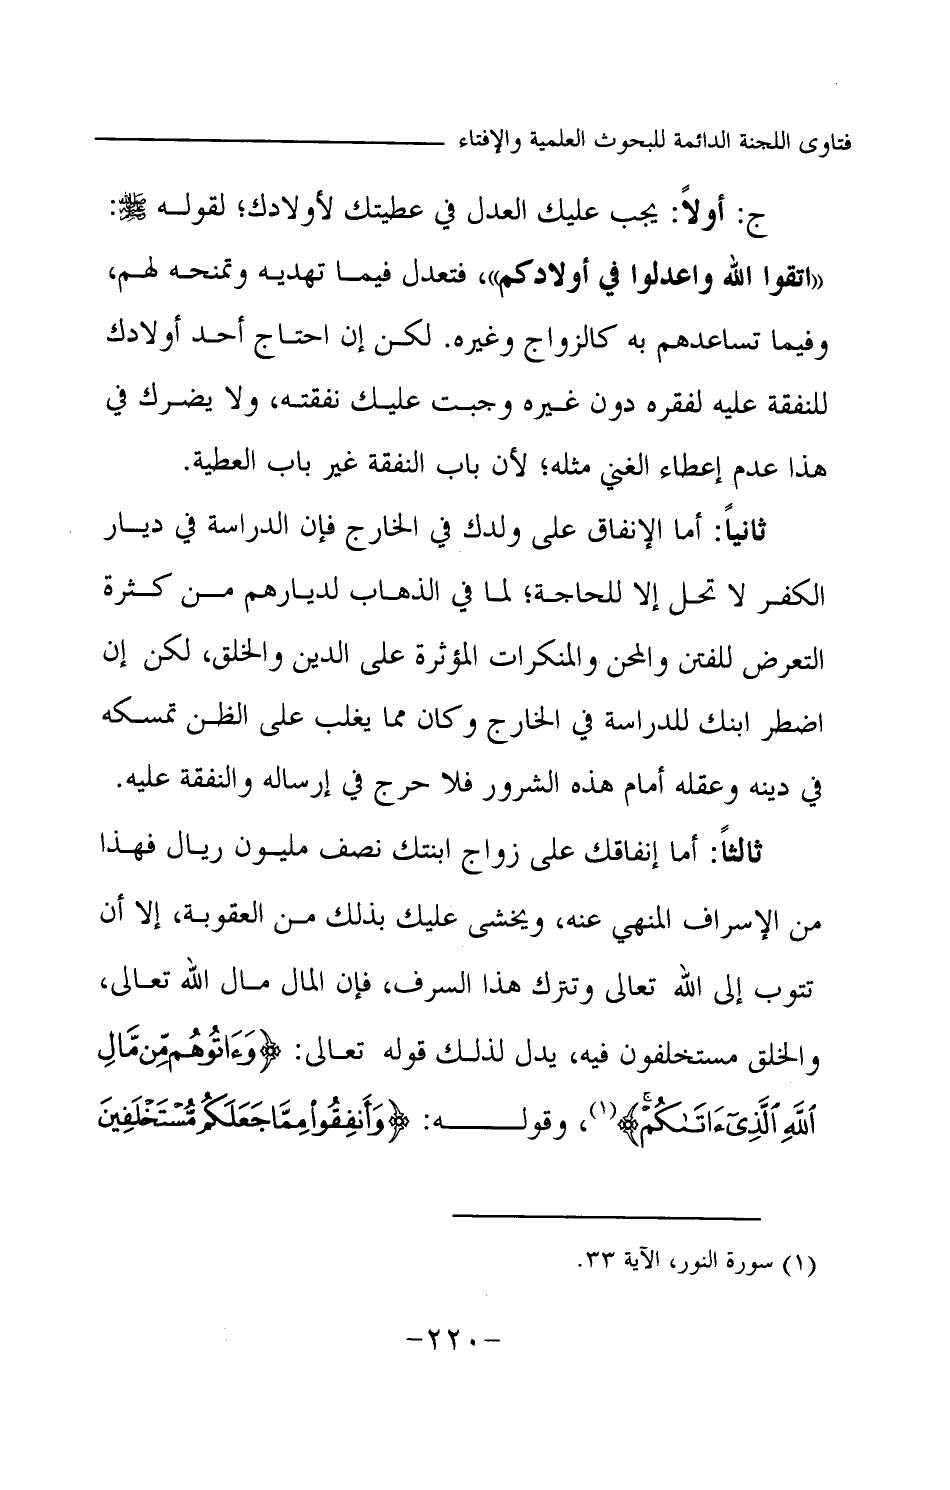 فتاوى اللجنة الدائمة للبحوث العلمية والإفتاء
ج: أولاً: يجب عليك العدل في عطيتك لأولادك؛ لقوله ﷺ:
«اتقوا الله واعدلوا في أولادكم»، فتعدل فيما تهديه وتمنحه لهم،
وفيما تساعدهم به كالزواج وغيره. لكن إن احتاج أحد أولادك
للنفقة عليه لفقره دون غيره وجبت عليك نفقته، ولا يضرك في
هذا عدم إعطاء الغني مثله؛ لأن باب النفقة غير باب العطية.
ثانياً: أما الإنفاق على ولدك في الخارج فإن الدراسة في ديار
الكفر لا تحل إلا للحاجة؛ لما في الذهاب لديارهم من كثرة
التعرض للفتن والمحن والمنكرات المؤثرة على الدين والخلق، لكن إن
اضطر ابنك للدراسة في الخارج وكان مما يغلب على الظن تمسكه
في دينه وعقله أمام هذه الشرور فلا حرج في إرساله والنفقة عليه.
ثالثاً: أما إنفاقك على زواج ابنتك نصف مليون ريال فهذا
من الإسراف المنهي عنه، ويخشى عليك بذلك من العقوبة، إلا أن
تتوب إلى الله تعالى وتترك هذا السرف، فإن المال مال الله تعالى،
والخلق مستخلفون فيه، يدل لذلك قوله تعالى: ﴿وَءَاتُوهُم مِّن مَّالِ
ٱللَّهِ ٱلَّذِىٓ ءَاتَىٰكُمْ ۚ﴾(١)، وقوله: ﴿وَأَنفِقُوا۟ مِمَّا جَعَلَكُم مُّسْتَخْلَفِينَ
(١) سورة النور، الآية ٣٣.
-٢٢٠-